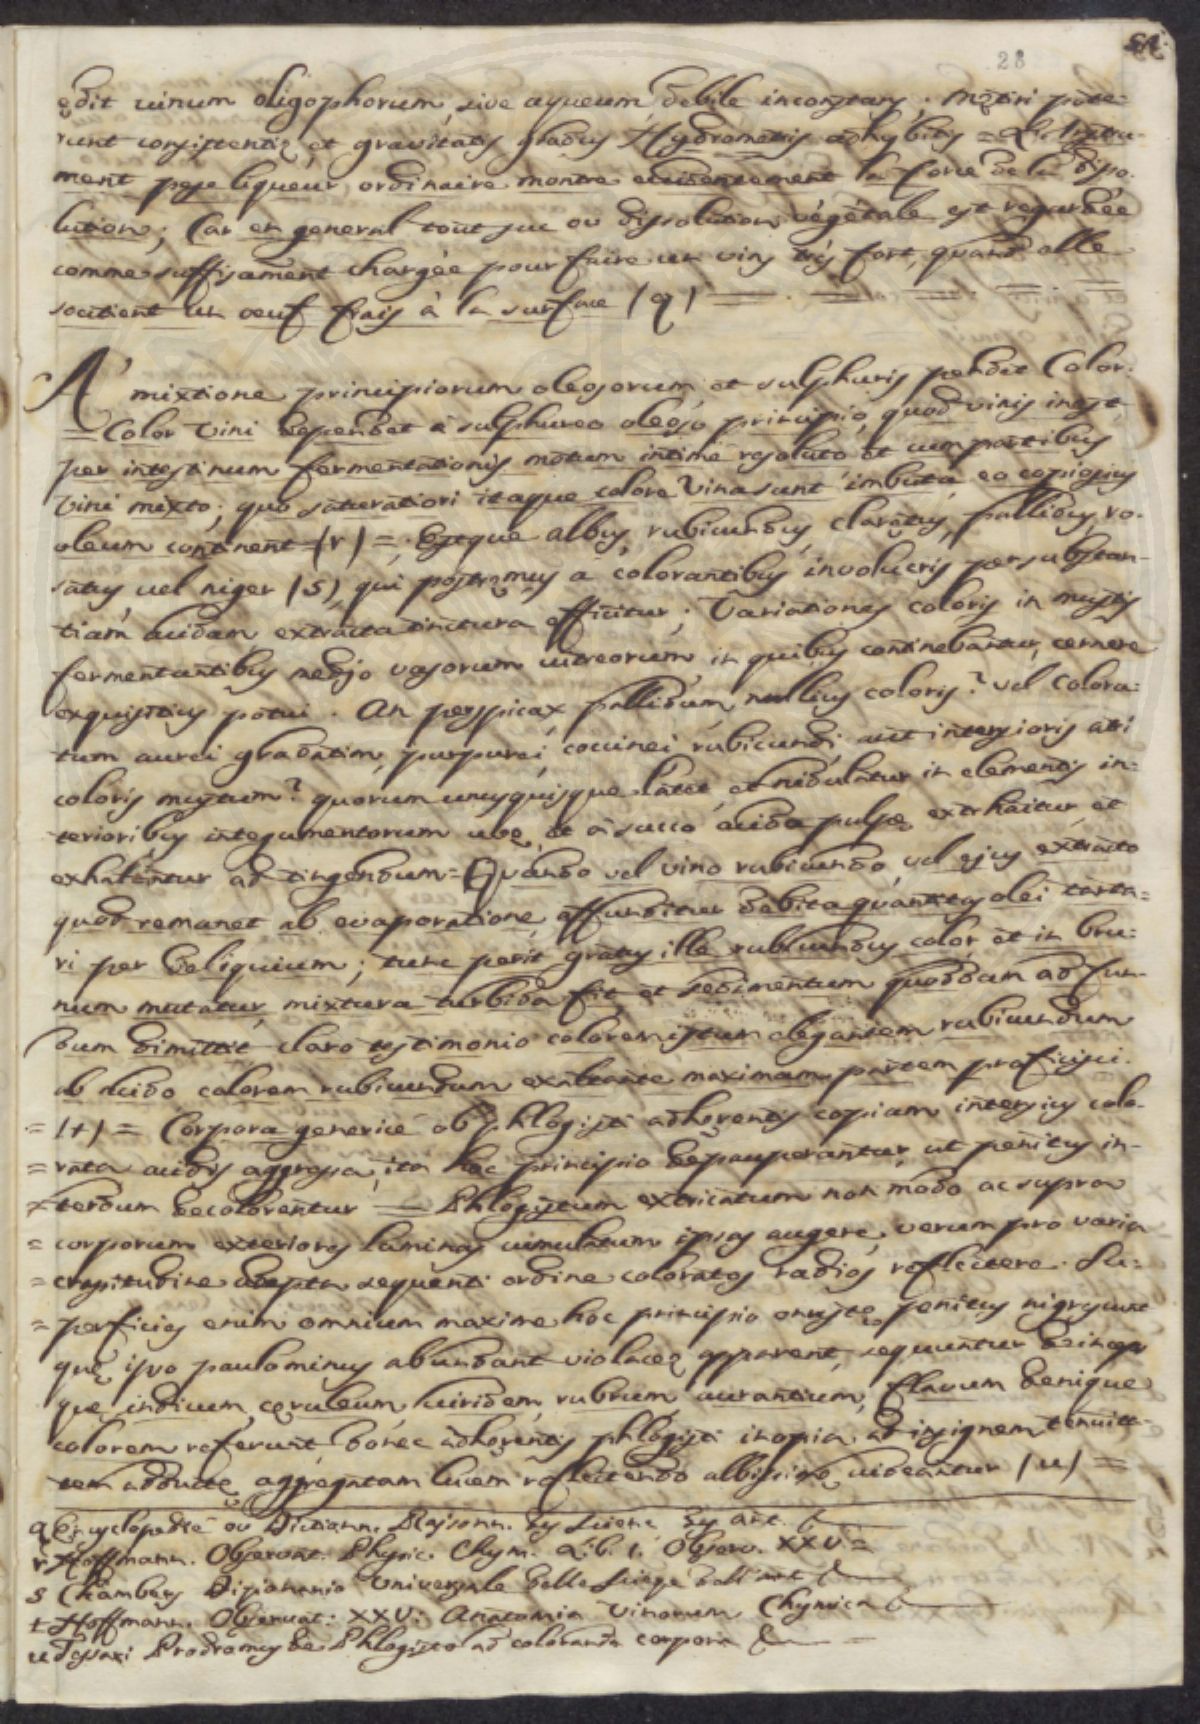 28
54.
ędit uinum oligophorum, sive aqueum, debile inconstans. Metiri pote-
runt consistentię, et gravitatis gradus Hydrometris adhybitis = L'Instru-
ment pese liqueur, ordinaire montre evidentement la force de la disso-
lution; Car en general tout suc ou dissolution végétale est regardée
comme suffisament chargée pour faire un vin trés fort, quand elle
soutient un oeuf frais à la surface (q)
A' mixtione principiorum oleosorum, et sulphuris pendet Color.
= Color Vini dependet à sulphureo oleoso principio, quod vinis inest
per intestinum fermentationis motum intimè resoluto et cum partibus
Vini mixto; quo saturatiori itaque colore Vina sunt imbuta eo copiosius
oleum continent (r) =, Estque albus, rubicundus, claretus, pallidus, ro-
satus uel niger (s), qui postremus à colorantibus involucris per substan-
tiam acidam extracta tinctura efficitur; Variationes coloris in mustis
fermentantibus medio vasorum uitreorum, in quibus continebantur, cernere
exquisitius potui. An perspicax pallidum, nullius coloris? Vel colora-
tum aurei gradatim, purpurei, coccinei, rubicundi, aut intensioris atri
coloris mustum? quorum unusquisque latet, et nidulatur in elementis in-
terioribus integumentorum uvę, et à succo acido pulpę extrhaitur, et
exhalantur ad tingendum = Quando vel vino rubicundo, vel ejus extracto
quod remanet ab evaporatione, affunditur debita quantitas olei tarta-
ri per deliquium; tunc perit gratus ille rubicundus color, et in bru-
num mutatur, mixtura turbida fit, et sedimentum quoddam ad fun-
dum dimittit claro testimonio colorem istum elegantem rubicundum
ab acido colorem rubicundum exaltante maximam partem proficisci.
= (t) = Corpora generice ob phlogisti adhęrentis copiam intensius colo-
= rata acidis aggressa, ita hoc principio depauperantur, ut penitus in-
= terdum decolorentur = Phlogistum extricatum non modo ac supra
= corporum exteriores laminas cumulatum ipsas augere, verum pro varia
= crassitudine adepta sequenti ordine coloratos radios reflectere. Su-
= perficies enim omnium maxime hoc principio onustę penitus nigrescunt
quę ipso paulominus abundant violaceę apparent, sequuntur deinceps
que indicum, cęruleum, uiridem, rubrum, aurantium, flavum denique
colorem referunt donec adhęrentis phlogisti inopia, ad insignem tenuita-
tem adductę aggregatam lucem reflectendo albissimę uideantur (u) =
q Encyclopedie ou Dictionn. Raisonn. des Scienc. des Art. &
r Hoffmann. Observat. Physic. Chym. Lib. 1. Observ. XXV =
s Chambers Dizionario Universale delle Scienze dell'art. &
t Hoffmann. Observat: XXV: Anatomia Vinorum Chymica &
u Prodromus de Phlogisto ad coloranda corpora &